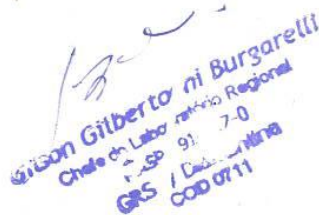 Gilson Gilberto ni Burgarelli
Chefe do Labo ratório Regional
SP 91 7-0
GRS /
COD 0711